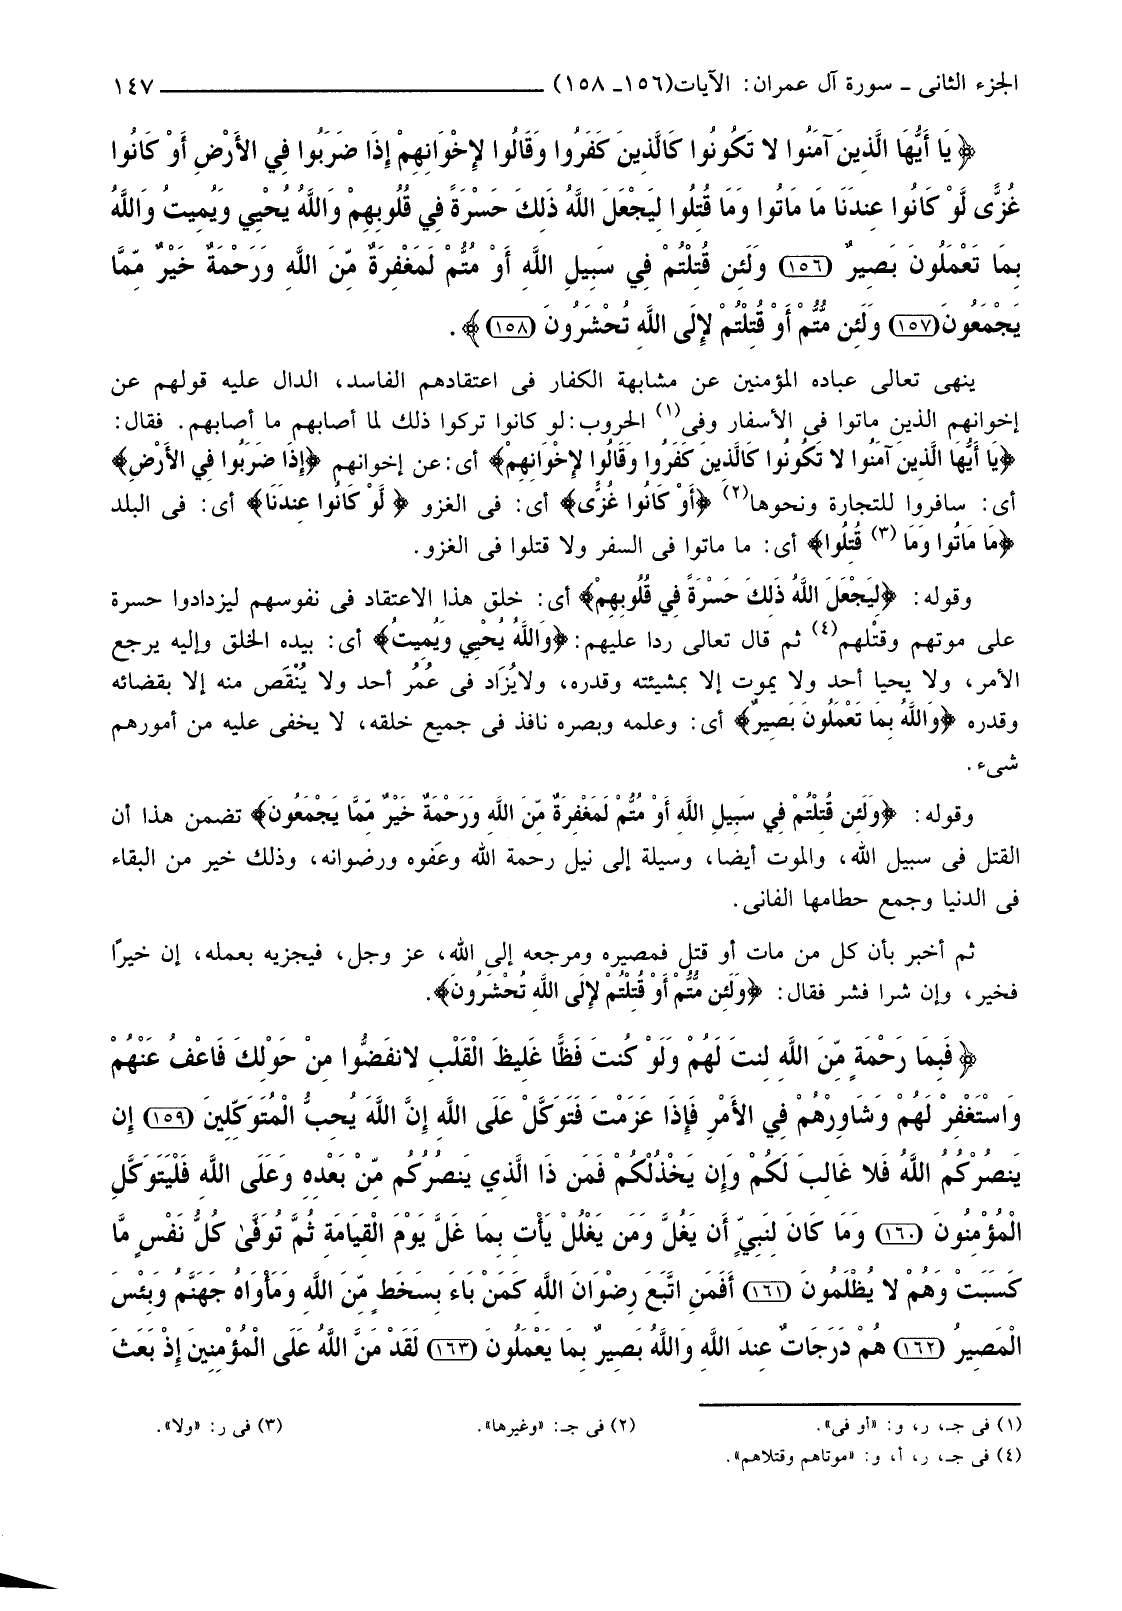 الجزء الثانى ـ سورة آل عمران: الآيات(١٥٦ـ ١٥٨) ــــــــــــــــ ١٤٧
﴿ يَا أَيُّهَا الَّذِينَ آمَنُوا لا تَكُونُوا كَالَّذِينَ كَفَرُوا وَقَالُوا لِإِخْوَانِهِمْ إِذَا ضَرَبُوا فِي الأَرْضِ أَوْ كَانُوا
غُزًّى لَّوْ كَانُوا عِندَنَا مَا مَاتُوا وَمَا قُتِلُوا لِيَجْعَلَ اللَّهُ ذَلِكَ حَسْرَةً فِي قُلُوبِهِمْ وَاللَّهُ يُحْيِي وَيُمِيتُ وَاللَّهُ
بِمَا تَعْمَلُونَ بَصِيرٌ (١٥٦) وَلَئِن قُتِلْتُمْ فِي سَبِيلِ اللَّهِ أَوْ مُتُّمْ لَمَغْفِرَةٌ مِّنَ اللَّهِ وَرَحْمَةٌ خَيْرٌ مِّمَّا
يَجْمَعُونَ (١٥٧) وَلَئِن مُّتُّمْ أَوْ قُتِلْتُمْ لإِلَى اللَّهِ تُحْشَرُونَ (١٥٨) ﴾ .
ينهى تعالى عباده المؤمنين عن مشابهة الكفار فى اعتقادهم الفاسد، الدال عليه قولهم عن
إخوانهم الذين ماتوا فى الأسفار وفى(١) الحروب: لو كانوا تركوا ذلك لما أصابهم ما أصابهم. فقال:
﴿يَا أَيُّهَا الَّذِينَ آمَنُوا لا تَكُونُوا كَالَّذِينَ كَفَرُوا وَقَالُوا لإِخْوَانِهِمْ﴾ أى: عن إخوانهم ﴿إِذَا ضَرَبُوا فِي الأَرْضِ﴾
أى: سافروا للتجارة ونحوها(٢) ﴿أَوْ كَانُوا غُزًّى﴾ أى: فى الغزو ﴿ لَّوْ كَانُوا عِندَنَا﴾ أى: فى البلد
﴿مَا مَاتُوا وَمَا (٣) قُتِلُوا﴾ أى: ما ماتوا فى السفر ولا قتلوا فى الغزو.
وقوله: ﴿لِيَجْعَلَ اللَّهُ ذَلِكَ حَسْرَةً فِي قُلُوبِهِمْ﴾ أى: خلق هذا الاعتقاد فى نفوسهم ليزدادوا حسرة
على موتهم وقتْلهم(٤) ثم قال تعالى ردا عليهم: ﴿وَاللَّهُ يُحْيِي وَيُمِيتُ﴾ أى: بيده الخلق وإليه يرجع
الأمر، ولا يحيا أحد ولا يموت إلا بمشيئته وقدره، ولايُزَاد فى عُمُر أحد ولا يُنْقَص منه إلا بقضائه
وقدره ﴿وَاللَّهُ بِمَا تَعْمَلُونَ بَصِيرٌ﴾ أى: وعلمه وبصره نافذ فى جميع خلقه، لا يخفى عليه من أمورهم
شىء.
وقوله: ﴿وَلَئِن قُتِلْتُمْ فِي سَبِيلِ اللَّهِ أَوْ مُتُّمْ لَمَغْفِرَةٌ مِّنَ اللَّهِ وَرَحْمَةٌ خَيْرٌ مِّمَّا يَجْمَعُونَ﴾ تضمن هذا أن
القتل فى سبيل الله، والموت أيضا، وسيلة إلى نيل رحمة الله وعَفوه ورضوانه، وذلك خير من البقاء
فى الدنيا وجمع حطامها الفانى.
ثم أخبر بأن كل من مات أو قتل فمصيره ومرجعه إلى الله، عز وجل، فيجزيه بعمله، إن خيرًا
فخير، وإن شرا فشر فقال: ﴿وَلَئِن مُّتُّمْ أَوْ قُتِلْتُمْ لإِلَى اللَّهِ تُحْشَرُونَ﴾.
﴿ فَبِمَا رَحْمَةٍ مِّنَ اللَّهِ لِنتَ لَهُمْ وَلَوْ كُنتَ فَظًّا غَلِيظَ الْقَلْبِ لانفَضُّوا مِنْ حَوْلِكَ فَاعْفُ عَنْهُمْ
وَاسْتَغْفِرْ لَهُمْ وَشَاوِرْهُمْ فِي الأَمْرِ فَإِذَا عَزَمْتَ فَتَوَكَّلْ عَلَى اللَّهِ إِنَّ اللَّهَ يُحِبُّ الْمُتَوَكِّلِينَ (١٥٩) إِن
يَنصُرْكُمُ اللَّهُ فَلا غَالِبَ لَكُمْ وَإِن يَخْذُلْكُمْ فَمَن ذَا الَّذِي يَنصُرُكُم مِّنْ بَعْدِهِ وَعَلَى اللَّهِ فَلْيَتَوَكَّلِ
الْمُؤْمِنُونَ (١٦٠) وَمَا كَانَ لِنَبِيٍّ أَن يَغُلَّ وَمَن يَغْلُلْ يَأْتِ بِمَا غَلَّ يَوْمَ الْقِيَامَةِ ثُمَّ تُوَفَّىٰ كُلُّ نَفْسٍ مَّا
كَسَبَتْ وَهُمْ لا يُظْلَمُونَ (١٦١) أَفَمَنِ اتَّبَعَ رِضْوَانَ اللَّهِ كَمَنْ بَاءَ بِسَخَطٍ مِّنَ اللَّهِ وَمَأْوَاهُ جَهَنَّمُ وَبِئْسَ
الْمَصِيرُ (١٦٢) هُمْ دَرَجَاتٌ عِندَ اللَّهِ وَاللَّهُ بَصِيرٌ بِمَا يَعْمَلُونَ (١٦٣) لَقَدْ مَنَّ اللَّهُ عَلَى الْمُؤْمِنِينَ إِذْ بَعَثَ
(١) فى جـ، ر، و: «أو فى». (٢) فى جـ: «وغيرها». (٣) فى ر: «ولا».
(٤) فى جـ، ر، أ، و: «موتاهم وقتلاهم».